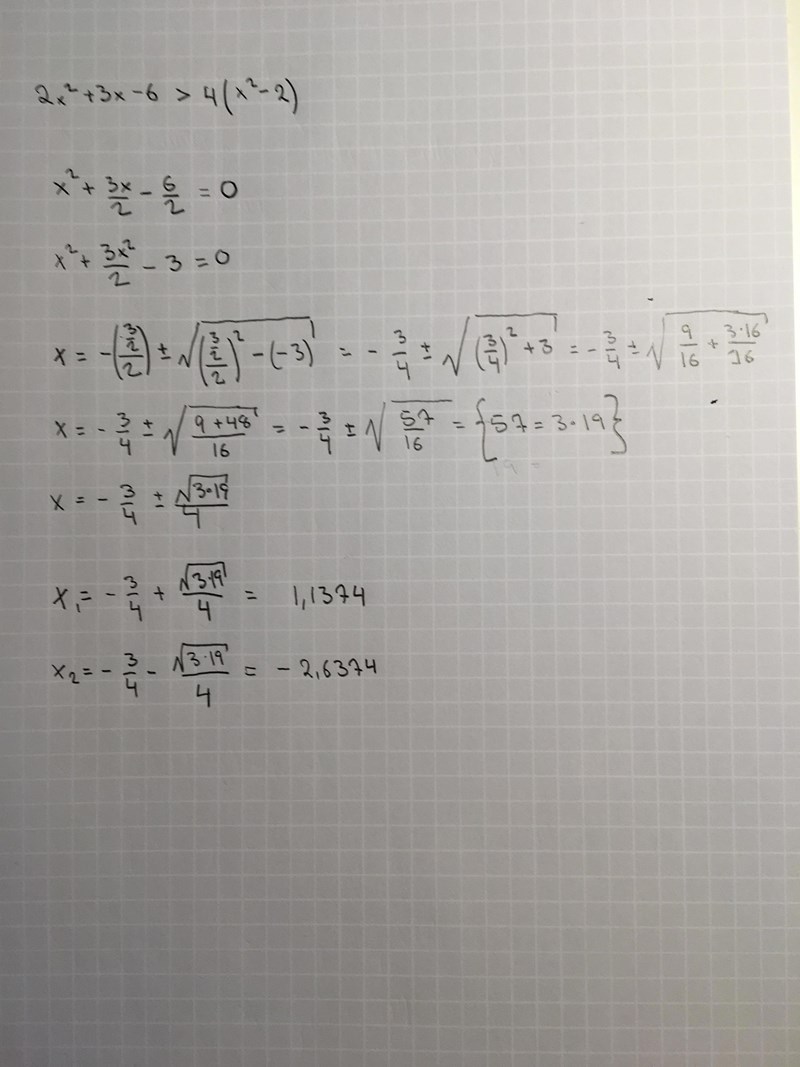 2x² + 3x - 6 > 4(x² - 2)
x² + 3x/2 - 6/2 = 0
x² + 3x²/2 - 3 = 0
x = -((3/2)/2) ± √(((3/2)/2)² - (-3)) = - 3/4 ± √((3/4)² + 3) = - 3/4 ± √(9/16 + 3·16/16)
x = - 3/4 ± √((9 + 48)/16) = - 3/4 ± √(57/16) = {57 = 3·19}
x = - 3/4 ± √(3·19)/4
x₁ = - 3/4 + √(3·19)/4 = 1,1374
x₂ = - 3/4 - √(3·19)/4 = - 2,6374